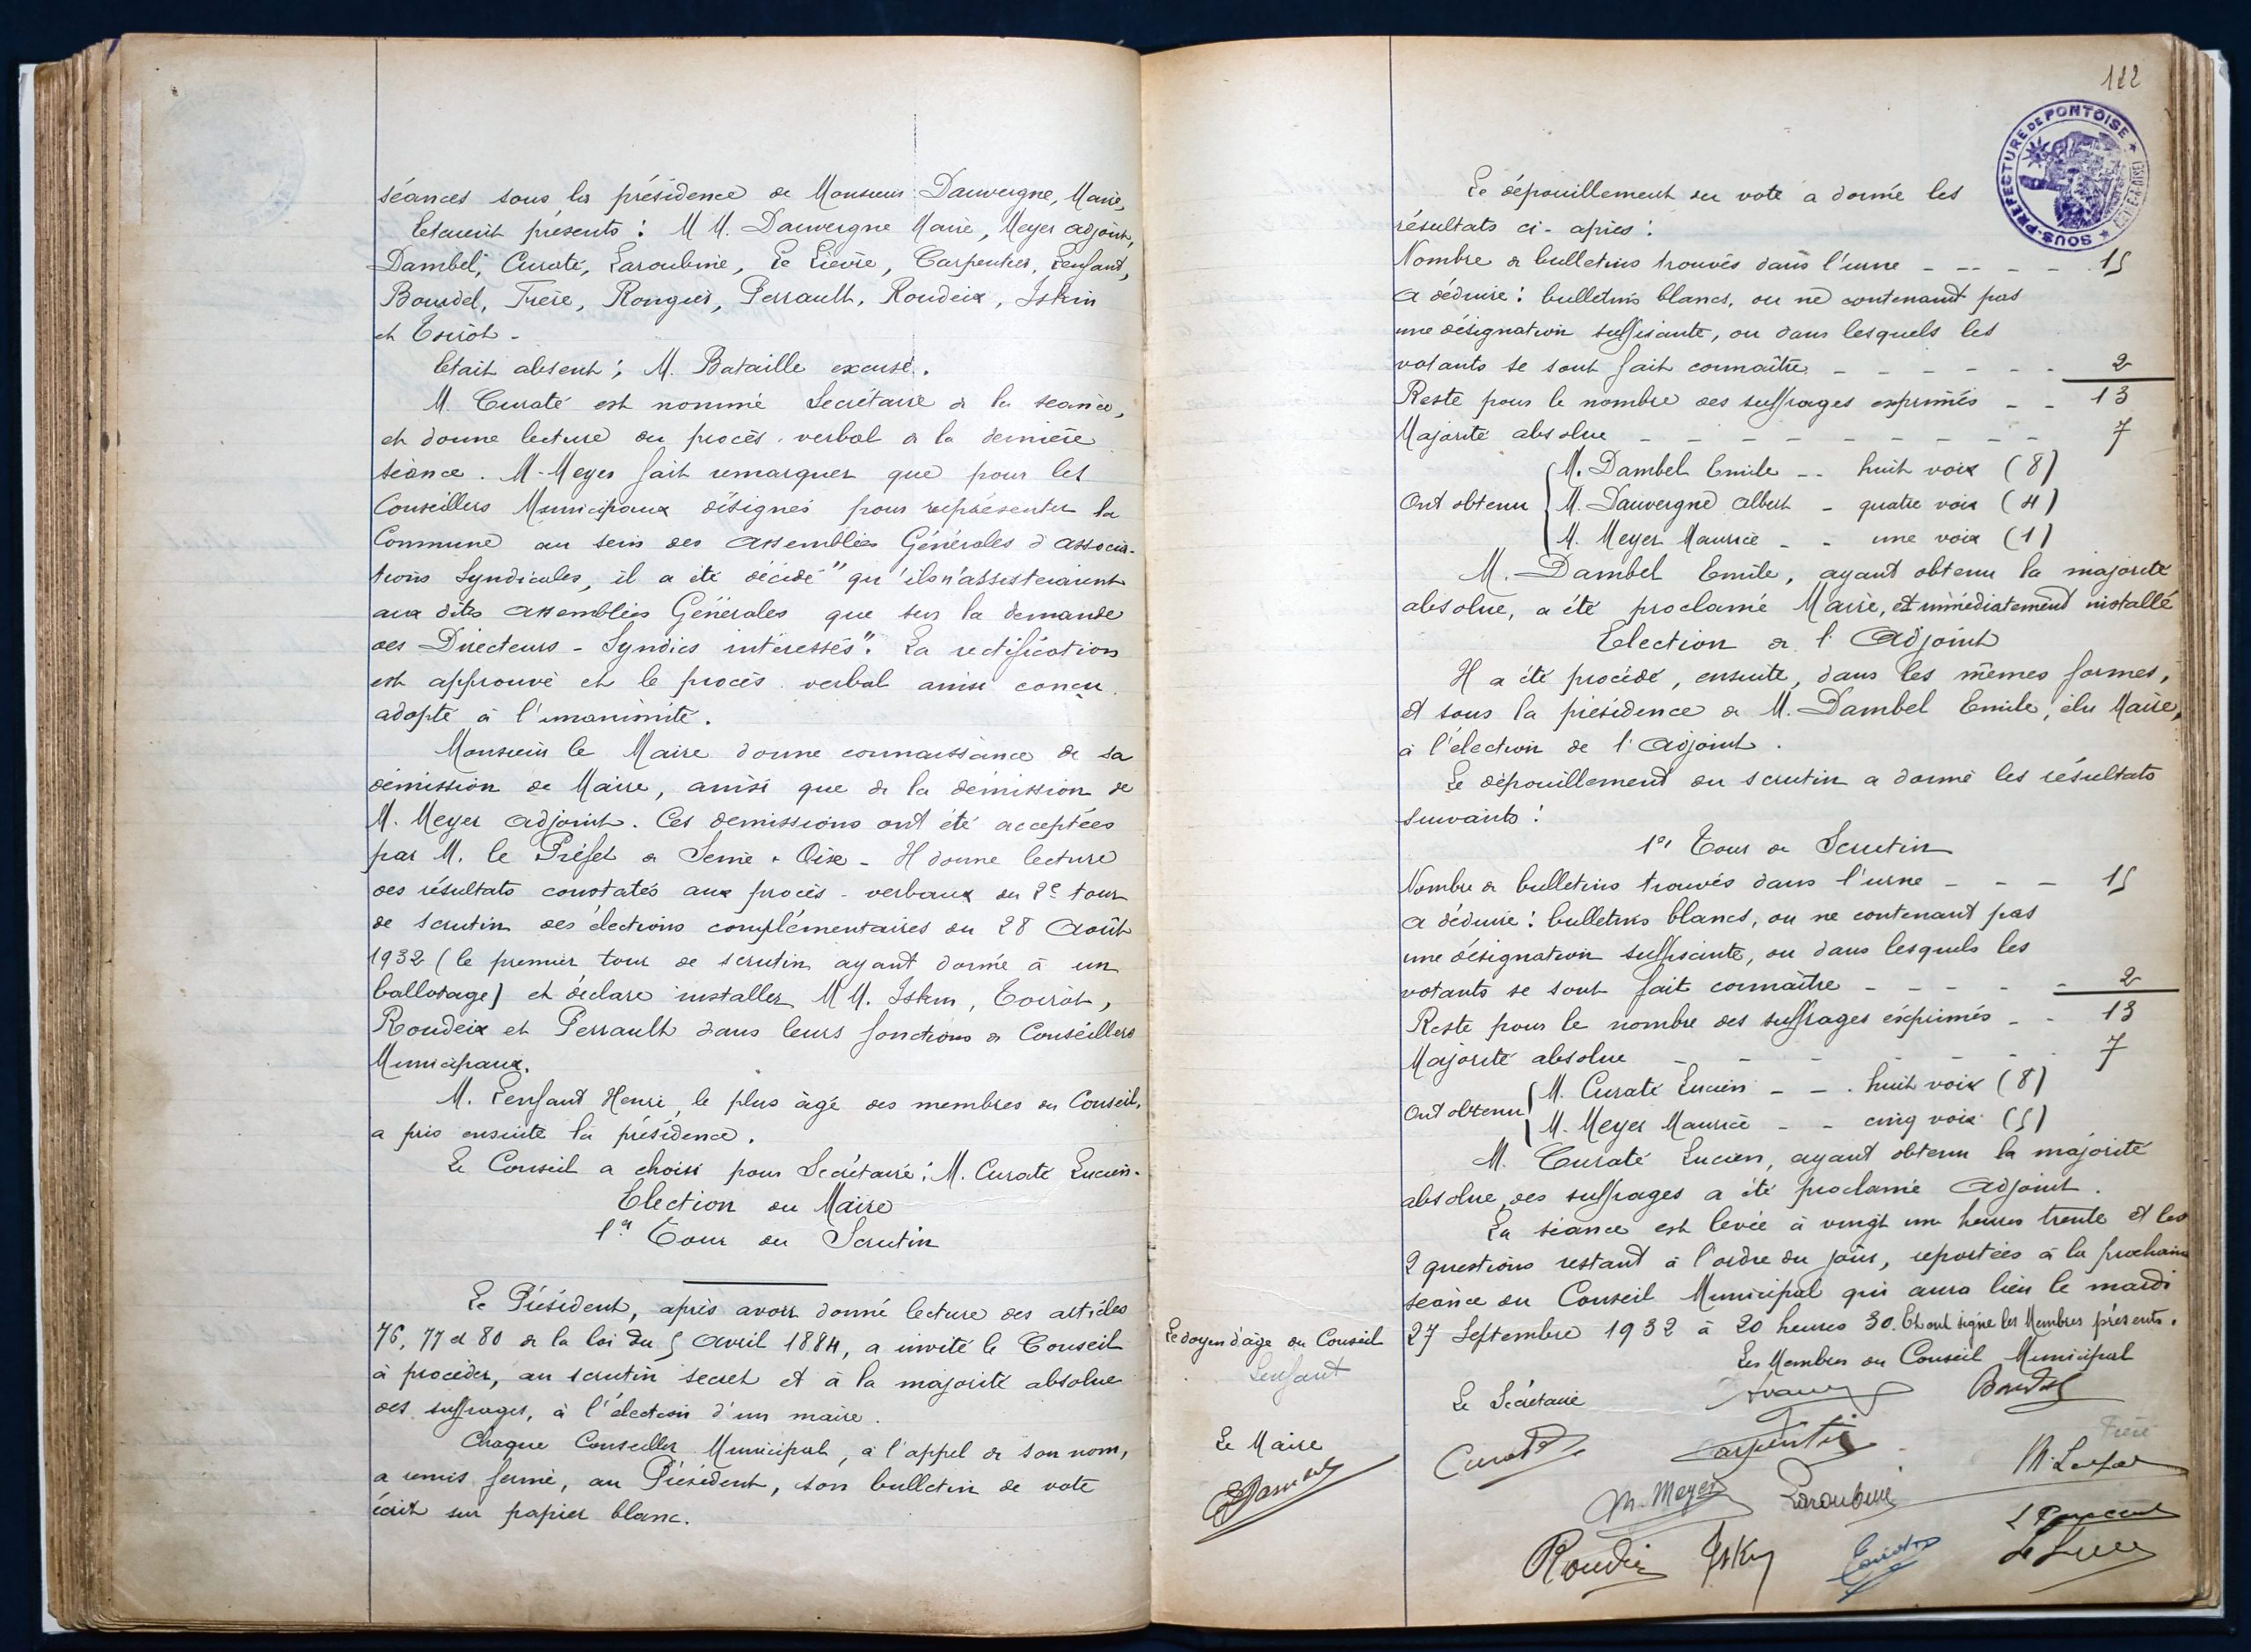 séances sous la présidence de Monsieur Dauvergne, Maire,
Etaient présents : M M. Dauvergne Maire, Meyer adjoint,
Dambel, Curaté, Laroubine, Le Lièvre, Carpentier, Lenfant,
Bourdel, Frère, Rongier, Perrault, Roudeix, Iskin
et Toiröt -
Etait absent ; M. Bataille excusé.
M. Curaté est nommé Secrétaire de la séance,
et donne lecture du procès-verbal de la dernière
séance. M. Meyer fait remarquer que pour les
Conseillers Municipaux désignés pour représenter la
Commune au sein des Assemblées Générales d'Associa-
tions Syndicales, il a été décidé "qu'ils n'assisteraient
aux dites Assemblées Générales que sur la demande
des Directeurs - Syndics intéressés". La rectification
est approuvé et le procès verbal ainsi conçu
adopté à l'unanimité.
Monsieur le Maire donne connaissance de sa
démission de Maire, ainsi que de la démission de
M. Meyer adjoint. Ces démissions ont été acceptées
par M. le Préfet de Seine & Oise - Il donne lecture
des résultats constatés aux procès-verbaux du 2e tour
de scrutin des élections complémentaires du 28 Août
1932 (le premier tour de scrutin ayant donné à un
ballotage) et déclare installer M M. Iskin, Toiröt,
Roudeix et Perrault dans leurs fonctions de Conseillers
Municipaux.
M. Lenfant Henri, le plus âgé des membres du Conseil,
a pris ensuite la présidence.
Le Conseil a choisi pour Secrétaire : M. Curaté Lucien.
Election du Maire
1er Tour du Scrutin
Le Président, après avoir donné lecture des articles
76, 77 et 80 de la loi du 5 Avril 1884, a invité le Conseil
à procéder, au scrutin secret et à la majorité absolue
des suffrages, à l'élection d'un maire.
Chaque Conseiller Municipal, à l'appel de son nom,
a remis fermé, au Président, son bulletin de vote
écrit sur papier blanc.
122
SOUS-PREFECTURE DE PONTOISE
Le dépouillement du vote a donné les
résultats ci-après :
Nombre de bulletins trouvés dans l'urne - - - - 15
A déduire : bulletins blancs, ou ne contenant pas
une désignation suffisante, ou dans lesquels les
votants se sont fait connaître - - - - - - 2
Reste pour le nombre des suffrages exprimés - - 13
Majorité absolue - - - - - - - - - 7
M. Dambel Emile - - huit voix (8)
Ont obtenu M. Dauvergne Albert - quatre voix (4)
M. Meyer Maurice - - une voix (1)
M. Dambel Emile, ayant obtenu la majorité
absolue, a été proclamé Maire, et immédiatement installé
Election de l'Adjoint
Il a été procédé, ensuite, dans les mêmes formes,
et sous la présidence de M. Dambel Emile, élu Maire,
à l'élection de l'Adjoint.
Le dépouillement du scrutin a donné les résultats
suivants :
1er Tour de Scrutin
Nombre de bulletins trouvés dans l'urne - - - 15
A déduire : bulletins blancs, ou ne contenant pas
une désignation suffisante, ou dans lesquels les
votants se sont fait connaître - - - - - 2
Reste pour le nombre des suffrages exprimés - - 13
Majorité absolue - - - - - - - - 7
M. Curaté Lucien - - . huit voix (8)
Ont obtenu M. Meyer Maurice - - cinq voix (5)
M. Curaté Lucien, ayant obtenu la majorité
absolue des suffrages a été proclamé Adjoint.
La séance est levée à vingt une heures trente et les
2 questions restant à l'ordre du jour, reportées à la prochaine
séance du Conseil Municipal qui aura lieu le mardi
27 Septembre 1932 à 20 heures 30. Et ont signé les Membres présents.
Le doyen d'âge du Conseil
Lenfant
Le Maire
Les Membres du Conseil Municipal
Le Secrétaire
Bourdel
Curaté
Carpentier
Frère
M. Meyer
Laroubine
Roudeix
Iskin